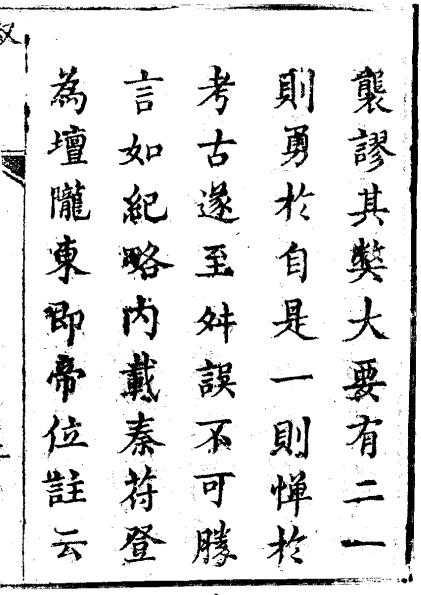 襲謬其弊大要有二一
則勇於自是一則憚於
考古遂至舛誤不可勝
言如紀略内載秦苻登
為壇隴東即帝位註云